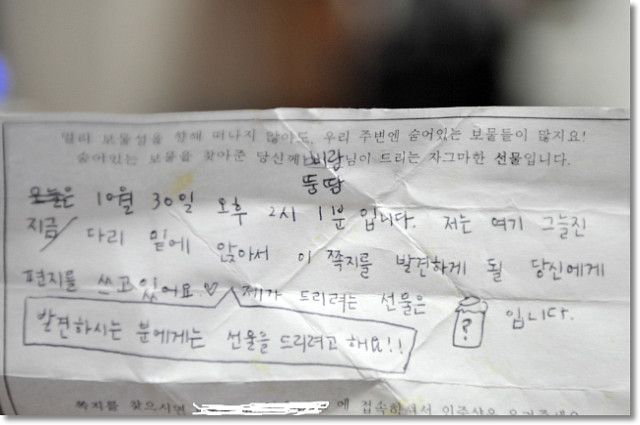 멀리 보물섬을 향해 떠나지 않아도, 우리 주변엔 숨어있는 보물들이 많지요!
숨어있는 보물을 찾아준 당신께 바람님이 드리는 자그마한 선물입니다.
뚱땅
오늘은 10월 30일 오후 2시 1분 입니다. 저는 여기 그늘진
지금 다리 밑에 앉아서 이 쪽지를 발견하게 될 당신에게
편지를 쓰고있어요♡ 제가 드리려는 선물은 ? 입니다.
발견하시는 분에게는 선물을 드리려고 해요!!
쪽지를 찾으시면 에 접속하셔서 인증샷을